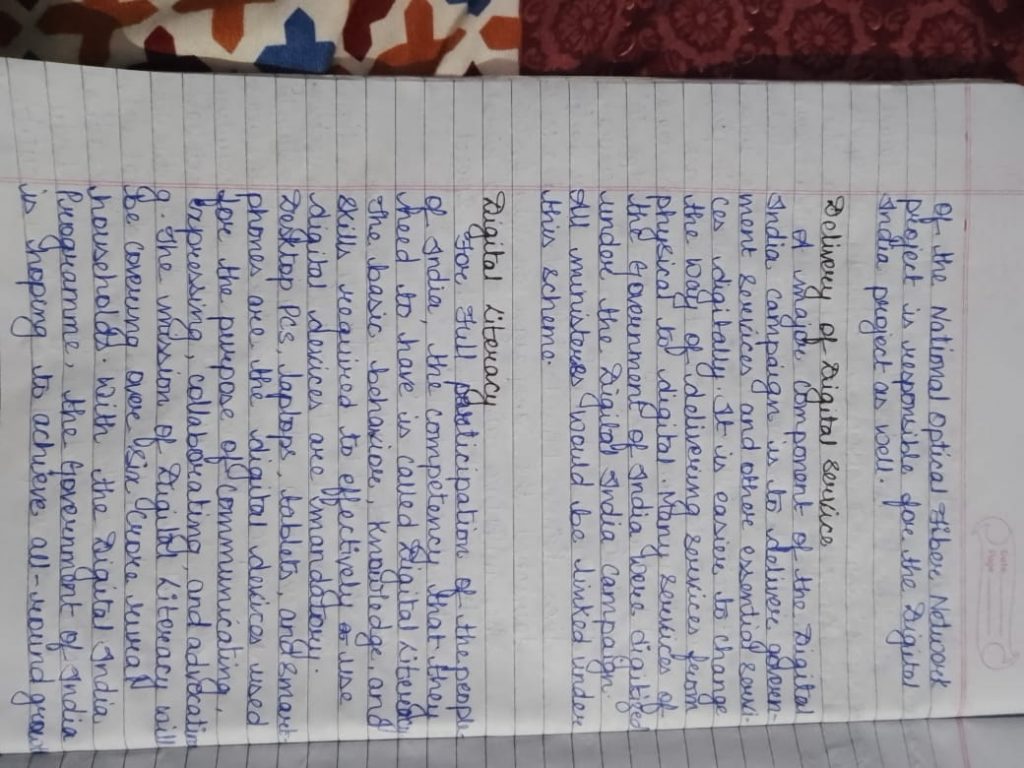 of the National Optical Fiber Network
project is responsible for the Digital
India project as well.
Delivery of Digital Service
A major component of the Digital
India campaign is to deliver govern-
ment services and other essential servi-
ces digitally. It is easier to change
the way of delivering services from
physical to digital. Many services of
the Government of India were digitized
under the Digital India campaign.
All ministores would be linked under
this scheme.
Digital Literacy
For Full participation of the people
of India, the competency that they
need to have is called Digital Literacy
The basic behavior, Knowledge, and
skills required to effectively use
digital devices are mandatory.
Desktop PCs, laptops, tablets, and Smart-
phones are the digital devices used
for the purpose of communicating,
expressing, collaborating, and advocatin
g. The mission of Digital Literacy will
be covering over six Crore rural
household. With the Digital India
Programme, the Government of India
is hoping to achieve all-round grow